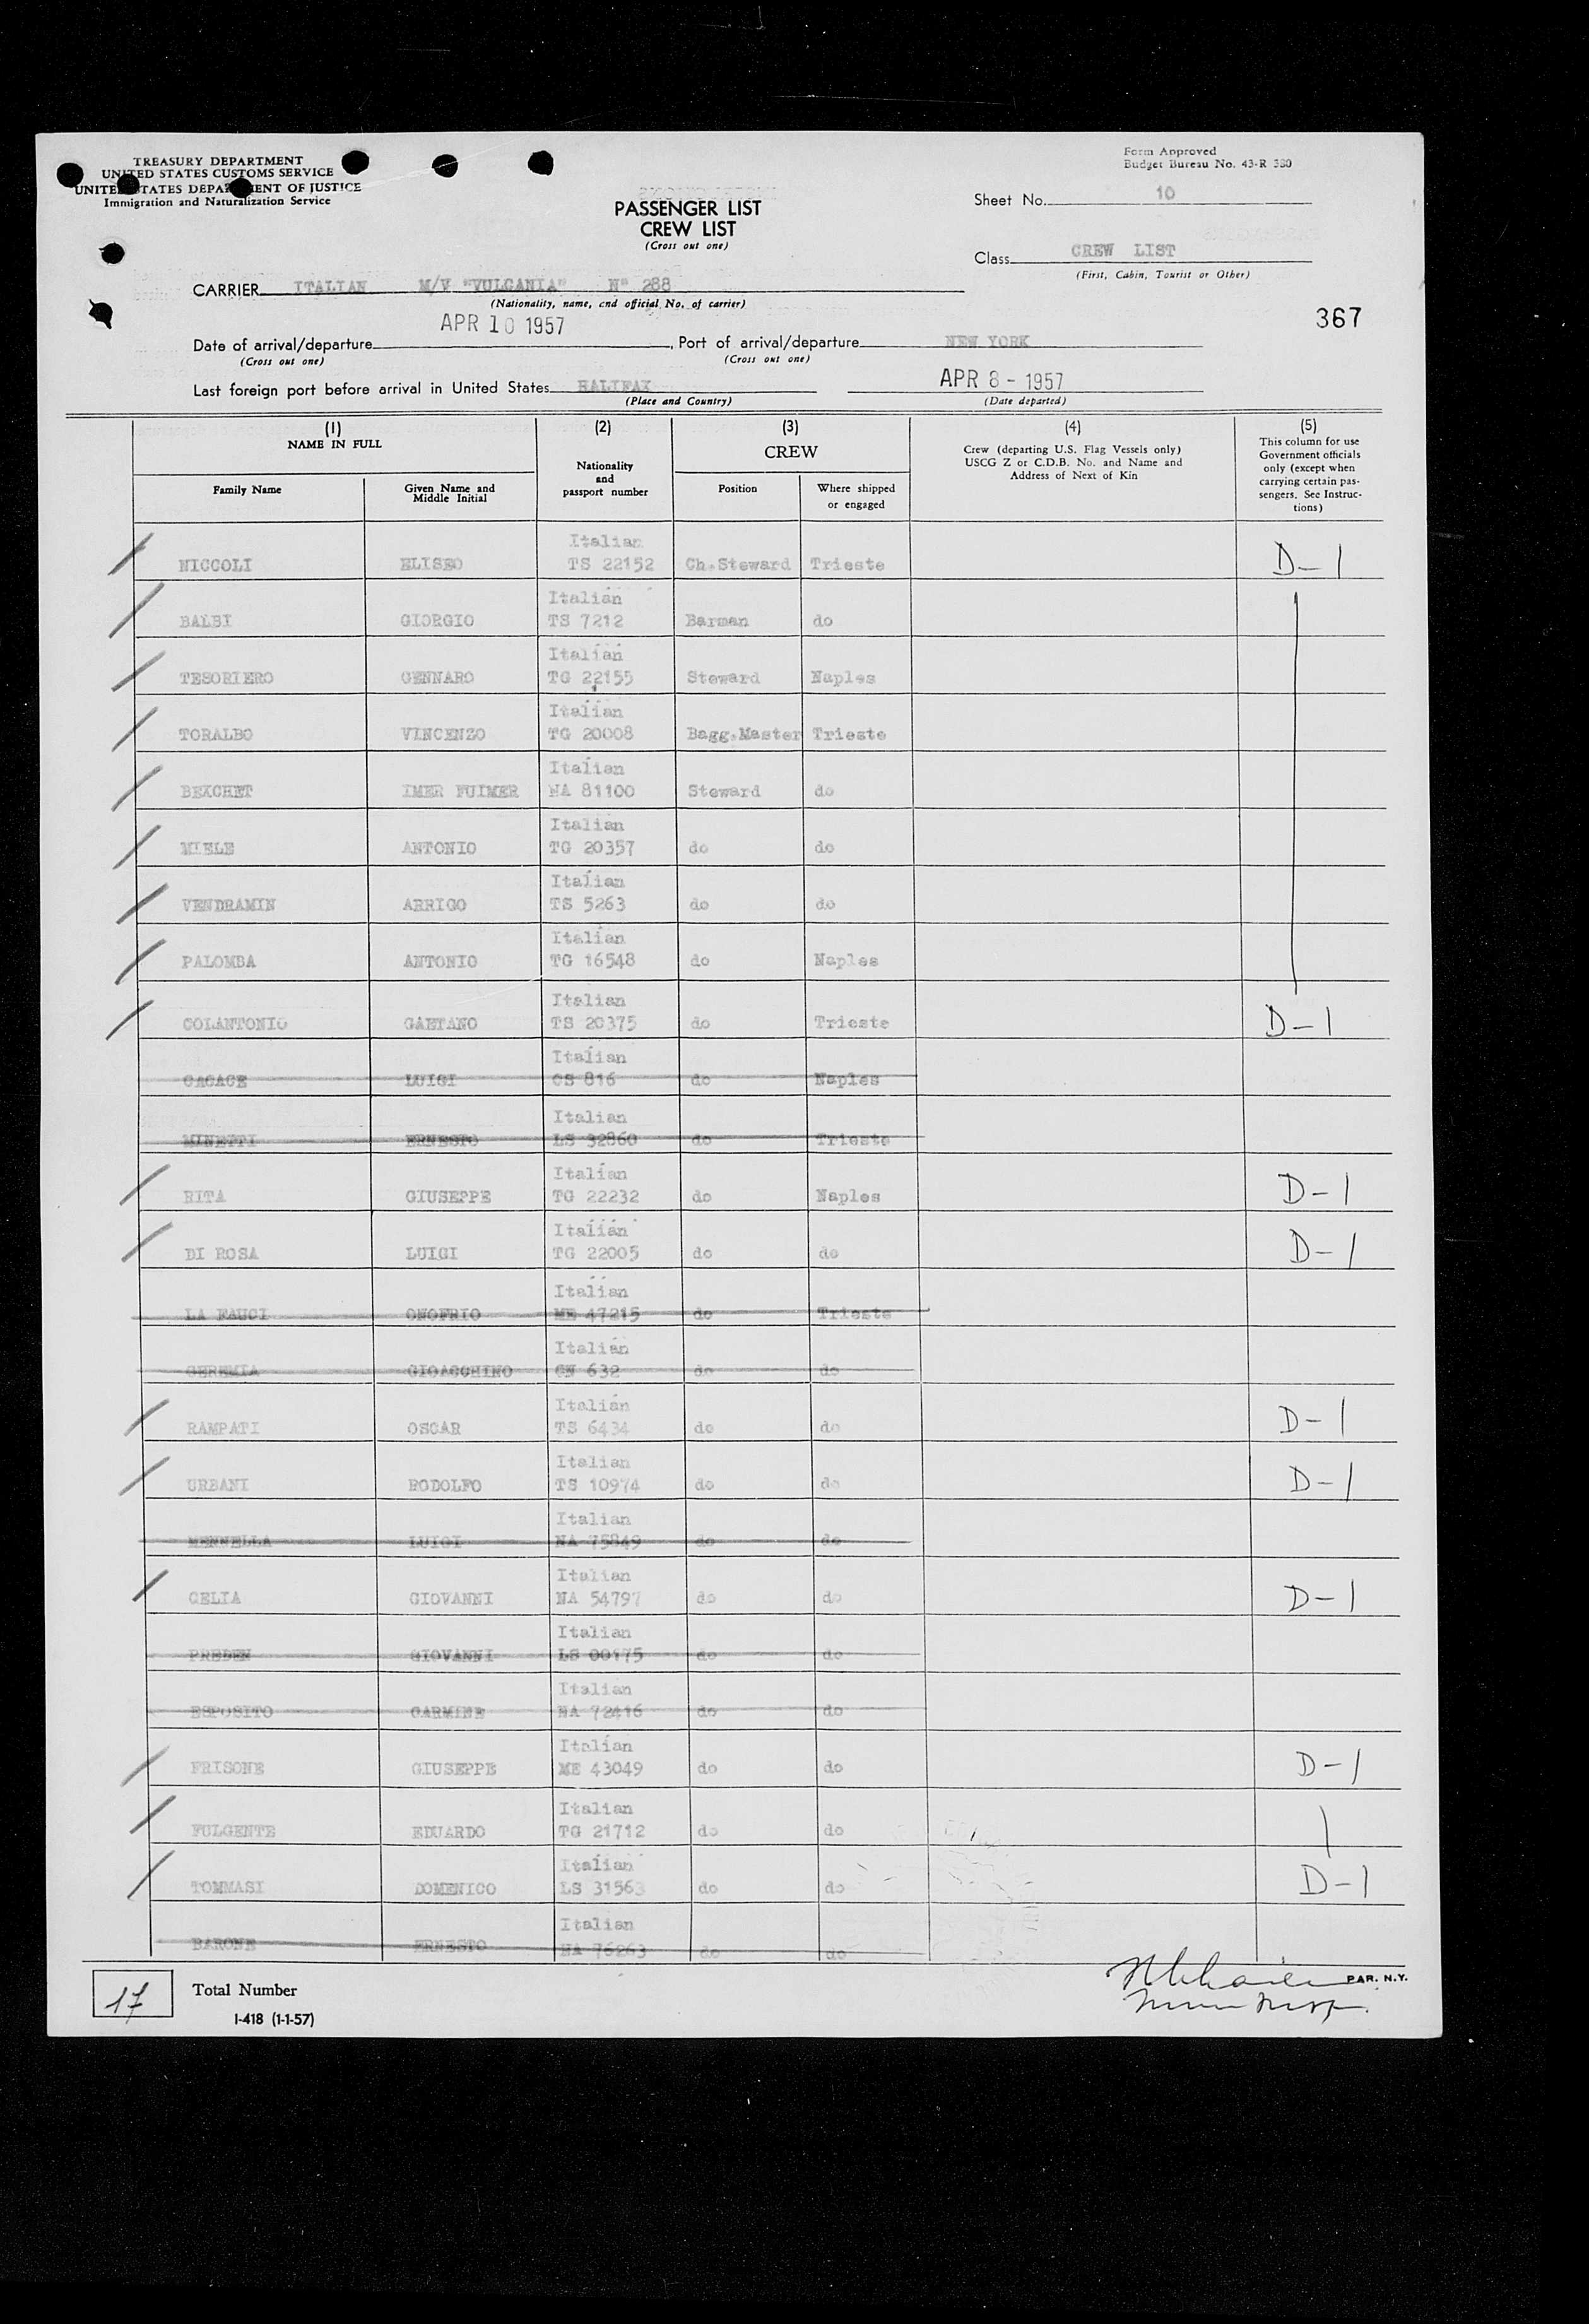 TREASURY DEPARTMENT
UNITED STATES CUSTOMS SERVICE
UNITED STATES DEPARTMENT OF JUSTICE
Immigration and Naturalization Service
Form Approved
Budget Bureau No. 43-R 380
PASSENGER LIST
CREW LIST
(Cross out one)
Sheet No. 10
Class CREW LIST
(First, Cabin, Tourist or Other)
CARRIER ITALIAN M/V "VULCANIA" N° 288
(Nationality, name, and official No. of carrier)
367
APR 10 1957
Date of arrival/departure , Port of arrival/departure NEW YORK
(Cross out one) (Cross out one)
Last foreign port before arrival in United States HALIFAX APR 8 - 1957
(Place and Country) (Date departed)
(1) NAME IN FULL
Family Name
Given Name and Middle Initial
(2)
Nationality and passport number
(3) CREW
Position
Where shipped or engaged
(4)
Crew (departing U.S. Flag Vessels only)
USCG Z or C.D.B. No. and Name and
Address of Next of Kin
(5)
This column for use
Government officials
only (except when
carrying certain pas-
sengers. See Instruc-
tions)
Italian
NICCOLI ELISEO TS 22152 Ch.Steward Trieste D-1
Italian
BALBI GIORGIO TS 7212 Barman do
Italian
TESORIERO GENNARO TG 22155 Steward Naples
Italian
TORALBO VINCENZO TG 20008 Bagg.Master Trieste
Italian
BEXCHET IMER FUIMER NA 81100 Steward do
Italian
MIELE ANTONIO TG 20357 do do
Italian
VENDRAMIN ARRIGO TS 5263 do do
Italian
PALOMBA ANTONIO TG 16548 do Naples
Italian
COLANTONIO GAETANO TS 20375 do Trieste D-1
Italian
CACACE LUIGI CS 816 do Naples
Italian
MINETTI ERNESTO LS 32860 do Trieste
Italian
RITA GIUSEPPE TG 22232 do Naples D-1
Italian
DI ROSA LUIGI TG 22005 do do D-1
Italian
LA FAUCI ONOFRIO ME 47215 do Trieste
Italian
GEREMIA GIOACCHINO CW 632 do do
Italian
RAMPATI OSCAR TS 6434 do do D-1
Italian
URBANI RODOLFO TS 10974 do do D-1
Italian
MENNELLA LUIGI NA 75849 do do
Italian
CELIA GIOVANNI NA 54797 do do D-1
Italian
PREDEN GIOVANNI LS 00175 do do
Italian
ESPOSITO CARMINE NA 72416 do do
Italian
FRISONE GIUSEPPE ME 43049 do do D-1
Italian
FULGENTE EDUARDO TG 21712 do do
Italian
TOMMASI DOMENICO LS 31563 do do D-1
Italian
BARONE ERNESTO NA 76263 do do
17 Total Number
I-418 (1-1-57)
PAR. N.Y.